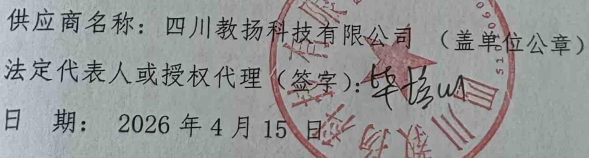 供应商名称：四川教扬科技有限公司 （盖单位公章）
法定代表人或授权代理（签字）：
日 期： 2026 年 4 月 15 日